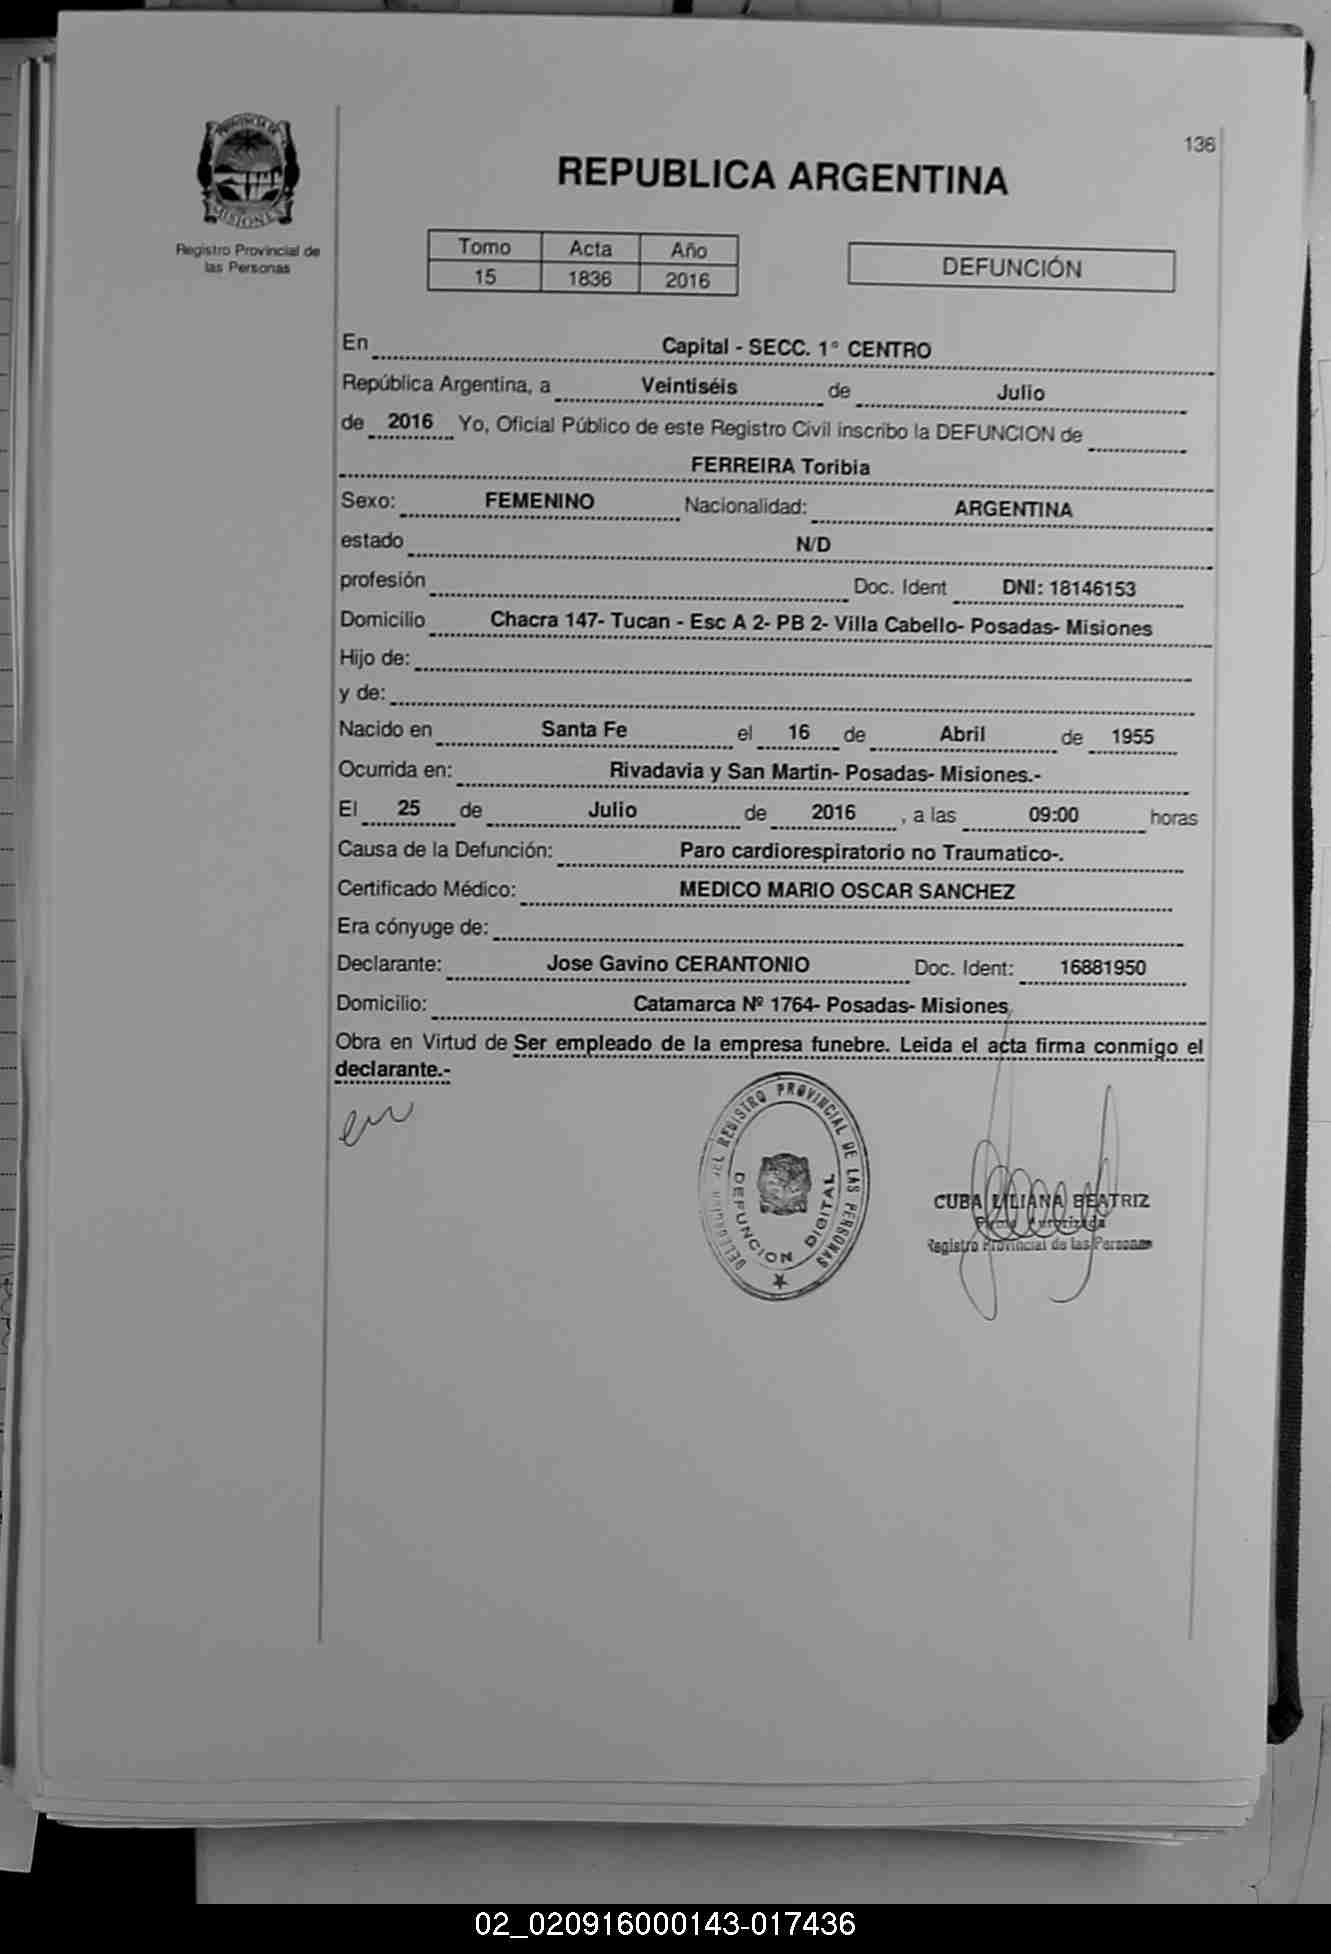 136
PROVINCIA DE
MISIONES
Registro Provincial de
las Personas
REPUBLICA ARGENTINA
Tomo Acta Año
15 1836 2016
DEFUNCIÓN
En Capital - SECC. 1° CENTRO
República Argentina, a Veintiséis de Julio
de 2016 Yo, Oficial Público de este Registro Civil inscribo la DEFUNCION de
FERREIRA Toribia
Sexo: FEMENINO Nacionalidad: ARGENTINA
estado N/D
profesión Doc. Ident DNI: 18146153
Domicilio Chacra 147- Tucan - Esc A 2- PB 2- Villa Cabello- Posadas- Misiones
Hijo de:
y de:
Nacido en Santa Fe el 16 de Abril de 1955
Ocurrida en: Rivadavia y San Martin- Posadas- Misiones.-
El 25 de Julio de 2016 , a las 09:00 horas
Causa de la Defunción: Paro cardiorespiratorio no Traumatico-.
Certificado Médico: MEDICO MARIO OSCAR SANCHEZ
Era cónyuge de:
Declarante: Jose Gavino CERANTONIO Doc. Ident: 16881950
Domicilio: Catamarca Nº 1764- Posadas- Misiones
Obra en Virtud de Ser empleado de la empresa funebre. Leida el acta firma conmigo el
declarante.-
DEL REGISTRO PROVINCIAL DE LAS PERSONAS
DEFUNCION DIGITAL
CUBA LILIANA BEATRIZ
Firma Autorizada
Registro Provincial de las Personas
02_020916000143-017436